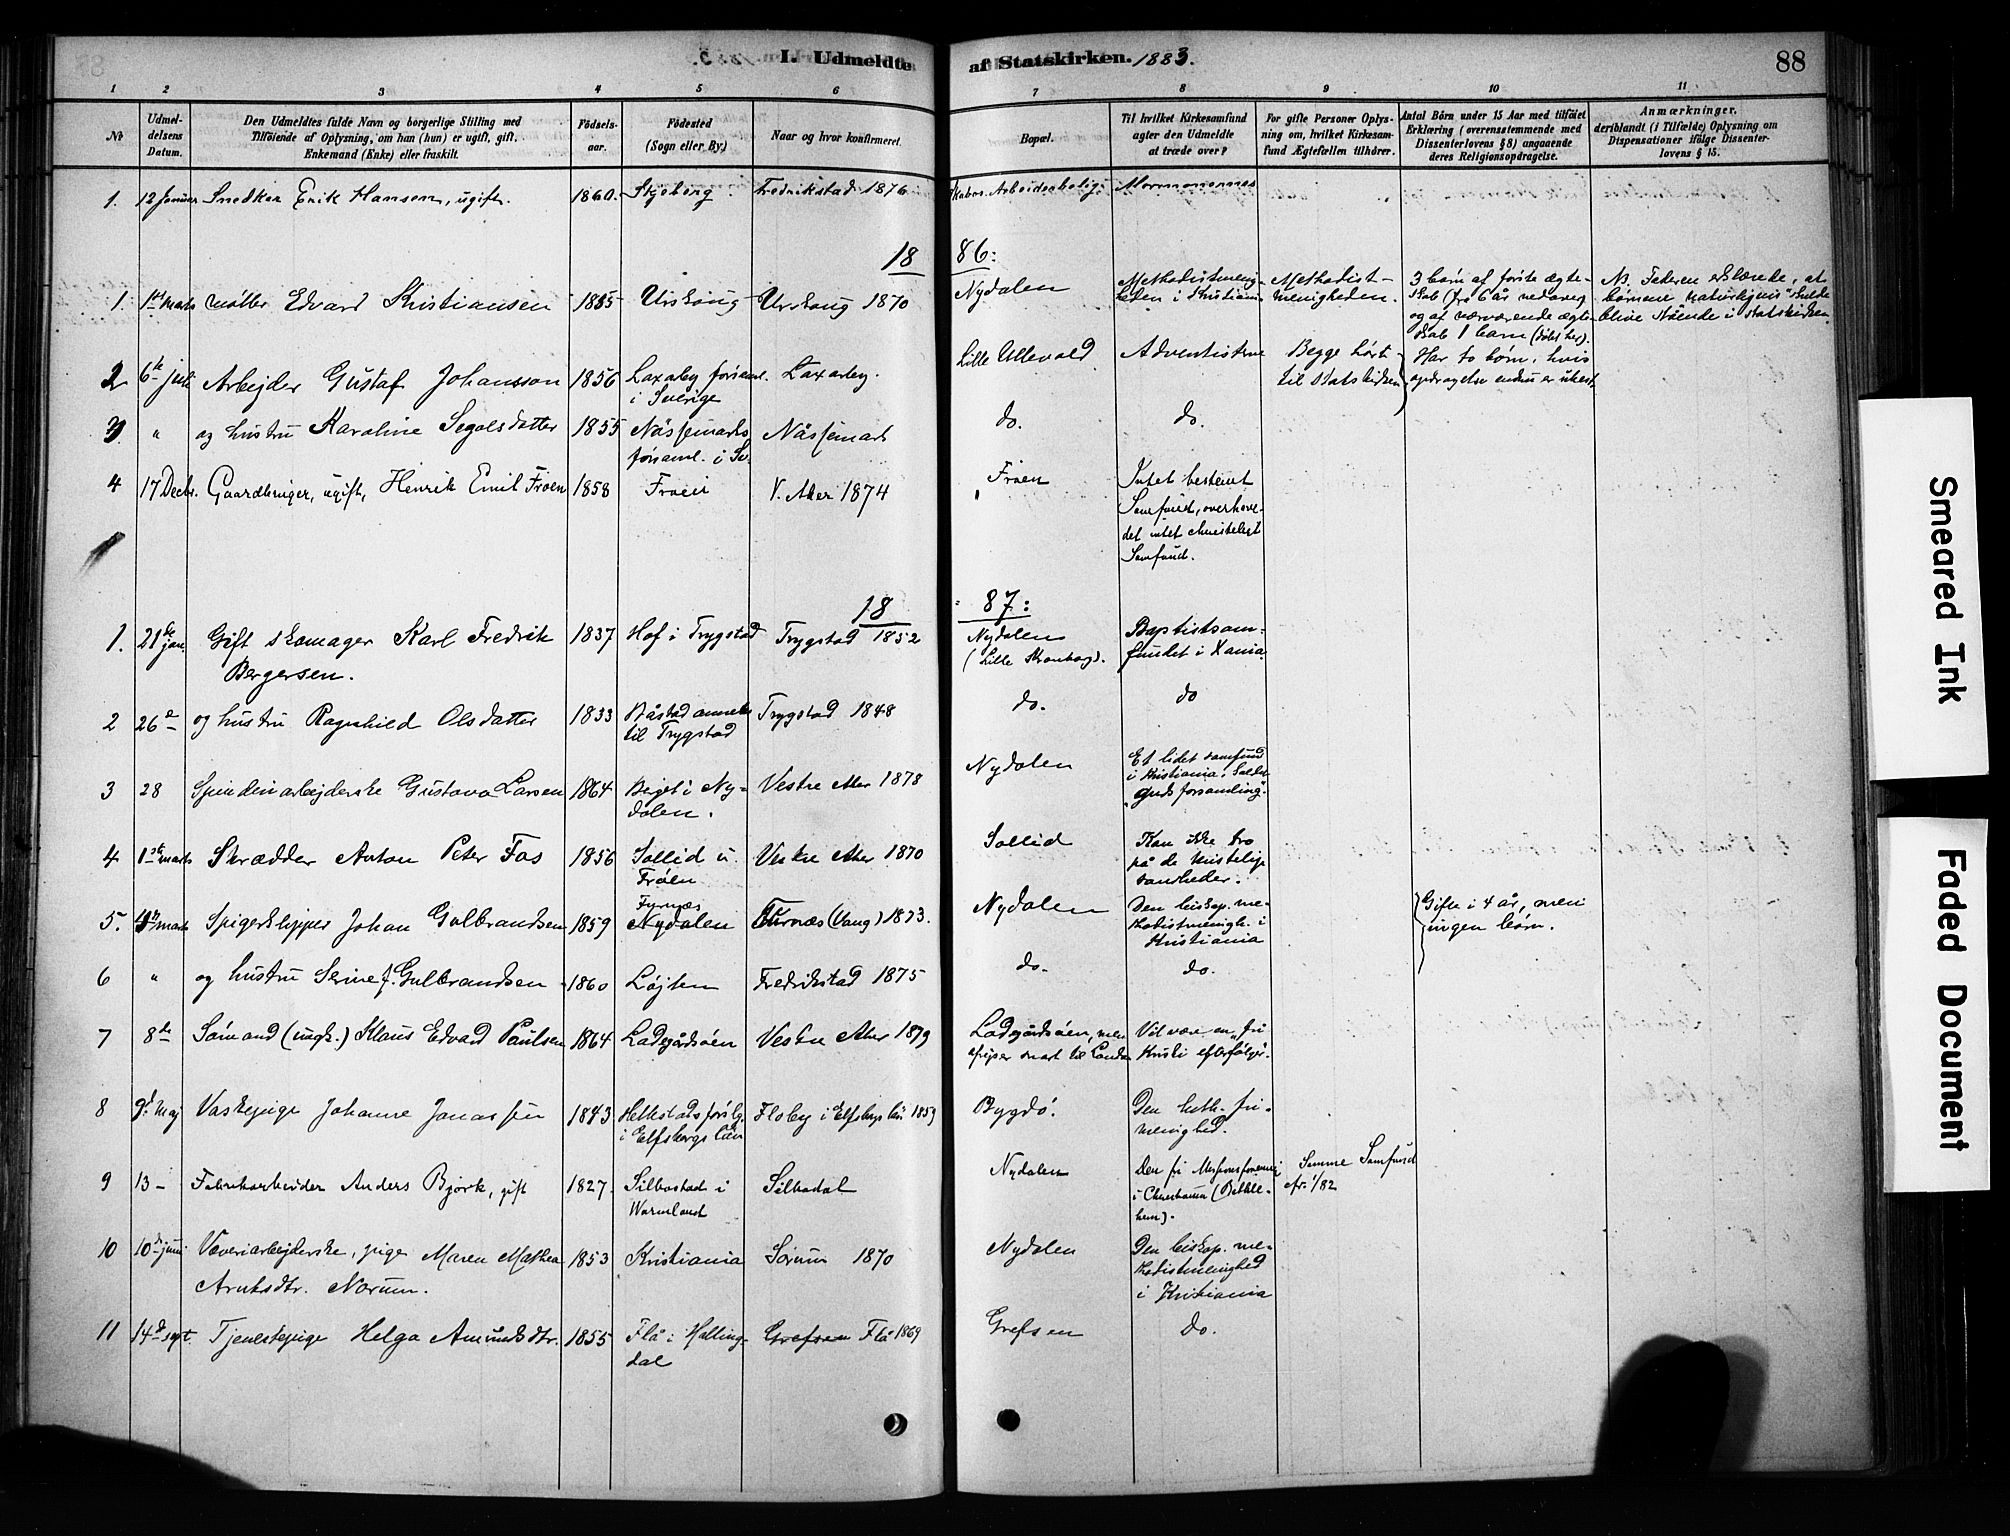 I. Udmeldte af Statskirken. 1883.
88
1 2 3 4 5 6 7 8 9 10 11
No
Udmel-
delsens
Datum.
Den Udmeldtes fulde Navn og borgerlige Stilling med
Tilföiende af Oplysning, om han (hun) er ugift, gift.
Enkemand (Enke) eller fraskilt.
Födsels-
aar.
Födested
(Sogn eller By.)
Naar og hvor konfirmeret.
Bopæl.
Til hvilket Kirkesamfund
agter den Udmeldte
at træde over?
For gifte Personer Oplys-
ning om, hvilket Kirkesam-
fund Ægtefællen tilhörer.
Antal Börn under 15 Aar med tilföiet
Erklæring (overensstemmende med
Dissenterlovens § 8) angaaende
deres Religionsopdragelse.
Anmærkninger.
deriblandt (i Tilfælde) Oplysning om
Dispensationer ifölge Dissenter-
lovens § 15.
1. 12 Januar Snedker Erik Hansen, ugift. 1860. Skjeberg Fredrikstad 1876 Arbeiderbolig. Mormonernes
18 86:
1. 1ste marts møller Edvard Kristiansen 1835 Urskoug Urskoug 1870 Nydalen
Methodistmenig-
heden i Kristiania
Methodist-
menigheden.
3 børn af første ægte-
skab (fra 6 år nedover)
og af nærværende ægte-
skab 1 barn (døbt her).
NB. Faderen erklærede, at
børnene naturligvis skulde
blive stående i statskirken
2 6te juli Arbejder Gustaf Johansson 1856 Laxarby forsaml.
i Sverige
Laxarby. Lille Ullevold Adventisterne
Begge hørte
til statskirken
Har to børn, hvis
opdragelse endnu er ubest.
3 " og hustru Karoline Segolsdatter 1855 Nössemarks
forsaml. i Sv.
Nössemark do. do.
4 17 Decbr. Gaardbruger, ugift, Henrik Emil Frøen 1858 Frøen V. Aker 1874 Frøen
Intet bestemt
Samfund, overhove-
det intet christeligt
Samfund.
18 87:
1. 21de jan. Gift skomager Karl Fredrik
Bergersen.
1837 Hof i Trygstad Trygstad 1852 Nydalen
(Lille Kronborg).
Baptistsam-
fundet i Xania
2 26de og hustru Ragnhild Olsdatter 1833 Båstad anneks
til Trygstad
Trygstad 1848 do. do
3 28 Spinderiarbejderske Gustava Larsen 1864 Bejet i Ny-
dalen.
Vestre Aker 1878 Nydalen
Et lidet samfund
i Kristiania:
"Guds forsamling".
4 1ste marts Skrædder Anton Peter Fos 1856 Sollid u.
Frøen
Vestre Aker 1870 Sollid
Kan ikke tro
på de kristelige
sandheder.
5. marts Spigerklipper Johan Gulbrandsen 1859 Furnæs
Nydalen
Furnæs (Vang) 1873. Nydalen
Den biskop. me-
thodistmenigh. i
Kristiania
Gifte i 4 år, men
ingen børn.
6 " og hustru Serine f. Gulbrandsen 1860 Løjten Fredrikstad 1875 do. do.
7 8de Sømand (ungk.) Klaus Edvard Paulsen 1864 Ladegårdsøen Vestre Aker 1879
Ladegårdsøen, men
afrejser snart til London
Vil være en "fri
Kristi efterfølger".
8 9d. Maj Vaskepige Johanne Jonassen 1843
i Elfsborgs län
Floby i Elfsborgs län 1859 Bygdø.
Den luth. fri-
menighed.
9 13 - Fabrikarbeider Anders Bjørk, gift 1827. Silbodal i
Warmland
Silbodal Nydalen
Den fri Missionsforening
i Christiania (Bethle-
hem).
Samme Samfund
Nr. 1/82
10 10de juni Væveriarbejderske, pige Maren Mathea
Arntsdtr. Norum.
1853 Kristiania Sørum 1870 Nydalen
Den biskop. me-
thodistmenighed
i Kristiania
11 14de sept. Tjenestepige Helga Amundsdtr. 1855 Flå i Halling-
dal
Grefsen Flå 1869 Grefsen do.
Smeared Ink
Faded Document